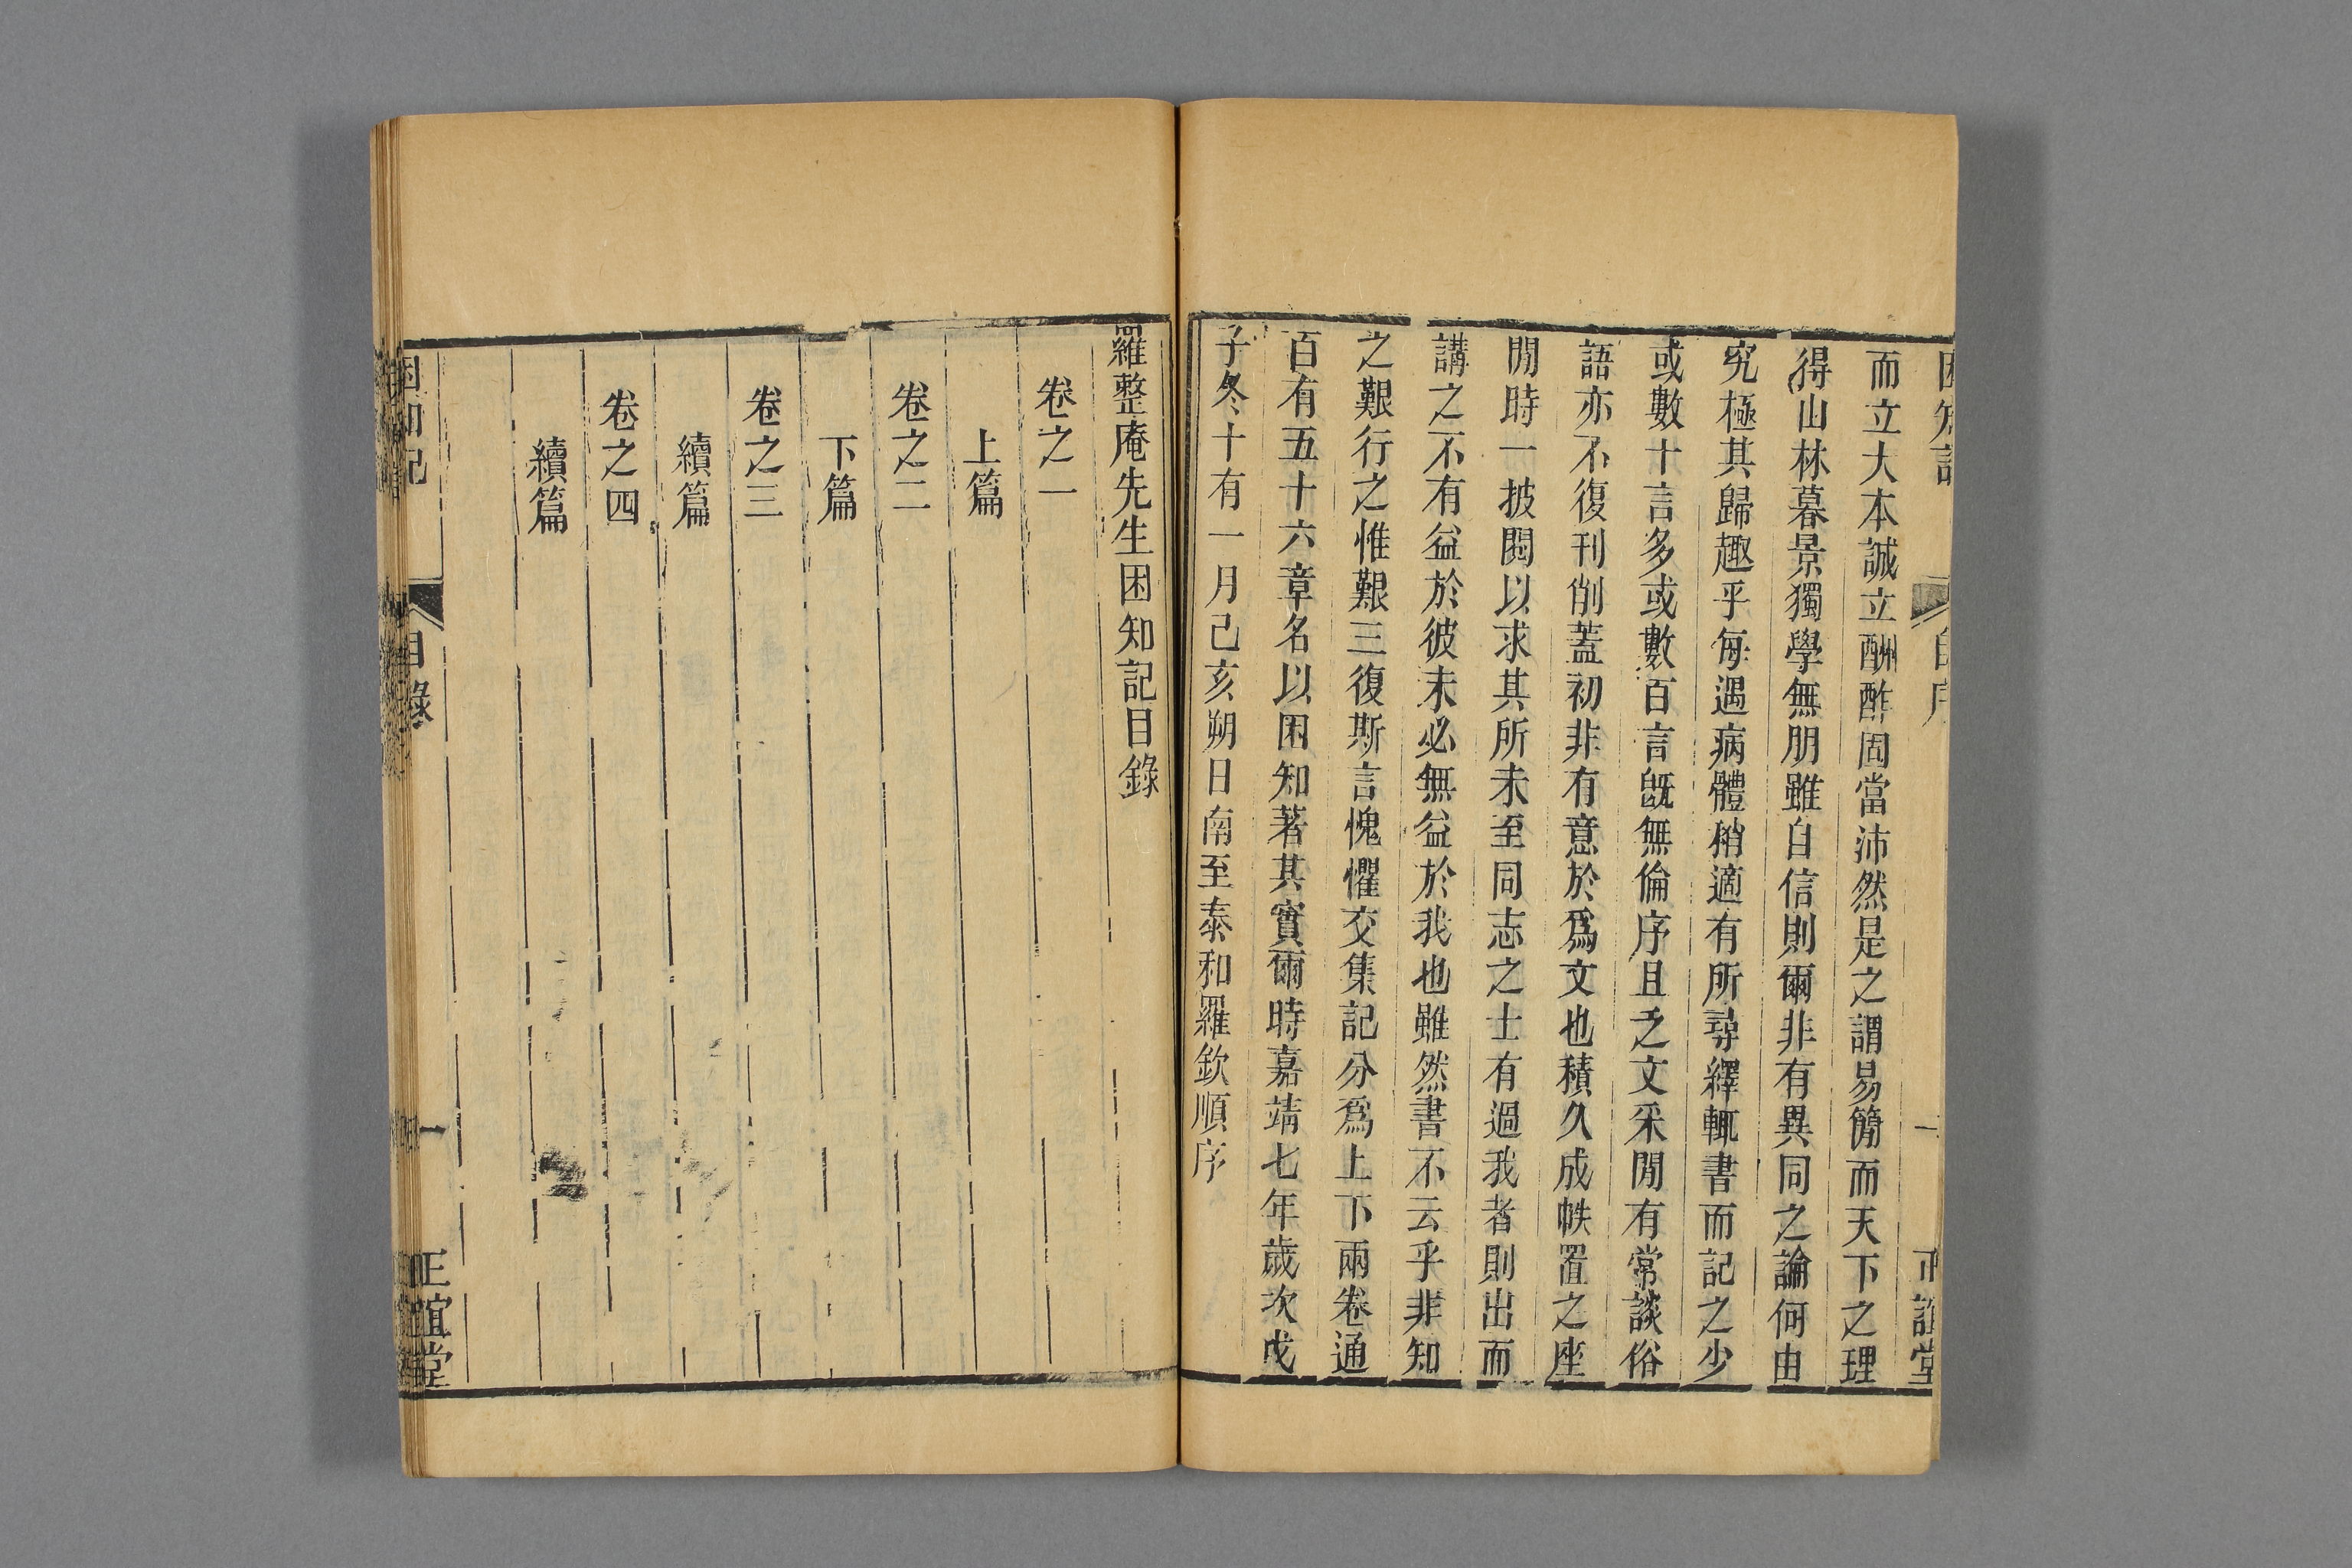 困知記
自序
一
正誼堂
而立大本誠立酬酢固當沛然是之謂易簡而天下之理
得山林暮景獨學無朋雖自信則爾非有異同之論何由
究極其歸趣乎每遇病體稍適有所尋繹輒書而記之少
或數十言多或數百言旣無倫序且乏文采閒有常談俗
語亦不復刊削蓋初非有意於爲文也積久成帙置之座
閒時一披閱以求其所未至同志之士有過我者則出而
講之不有益於彼未必無益於我也雖然書不云乎非知
之艱行之惟艱三復斯言愧懼交集記分爲上下兩卷通
百有五十六章名以困知著其實爾時嘉靖七年歲次戊
子冬十有一月己亥朔日南至泰和羅欽順序
羅整庵先生困知記目錄
卷之一
上篇
卷之二
下篇
卷之三
續篇
卷之四
續篇
困知記
目錄
一
正誼堂